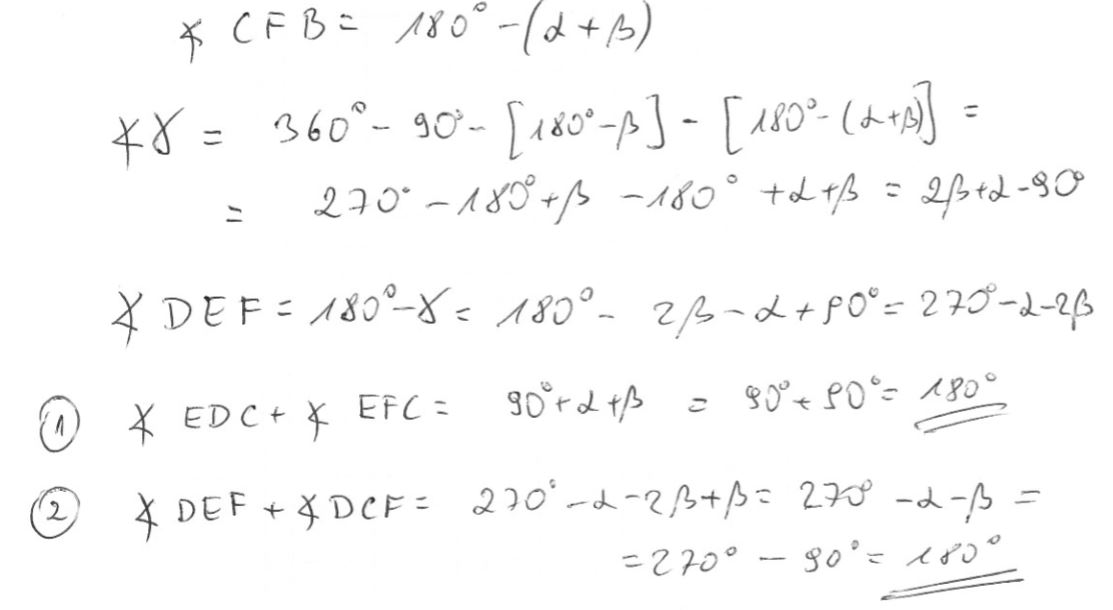 ∢ CFB = 180° - (α + β)
∢γ = 360° - 90° - [180° - β] - [180° - (α+β)] =
= 270° - 180° + β - 180° + α + β = 2β + α - 90°
∢ DEF = 180° - γ = 180° - 2β - α + 90° = 270° - α - 2β
① ∢ EDC + ∢ EFC = 90° + α + β = 90° + 90° = 180°
② ∢ DEF + ∢ DCF = 270° - α - 2β + β = 270° - α - β =
= 270° - 90° = 180°